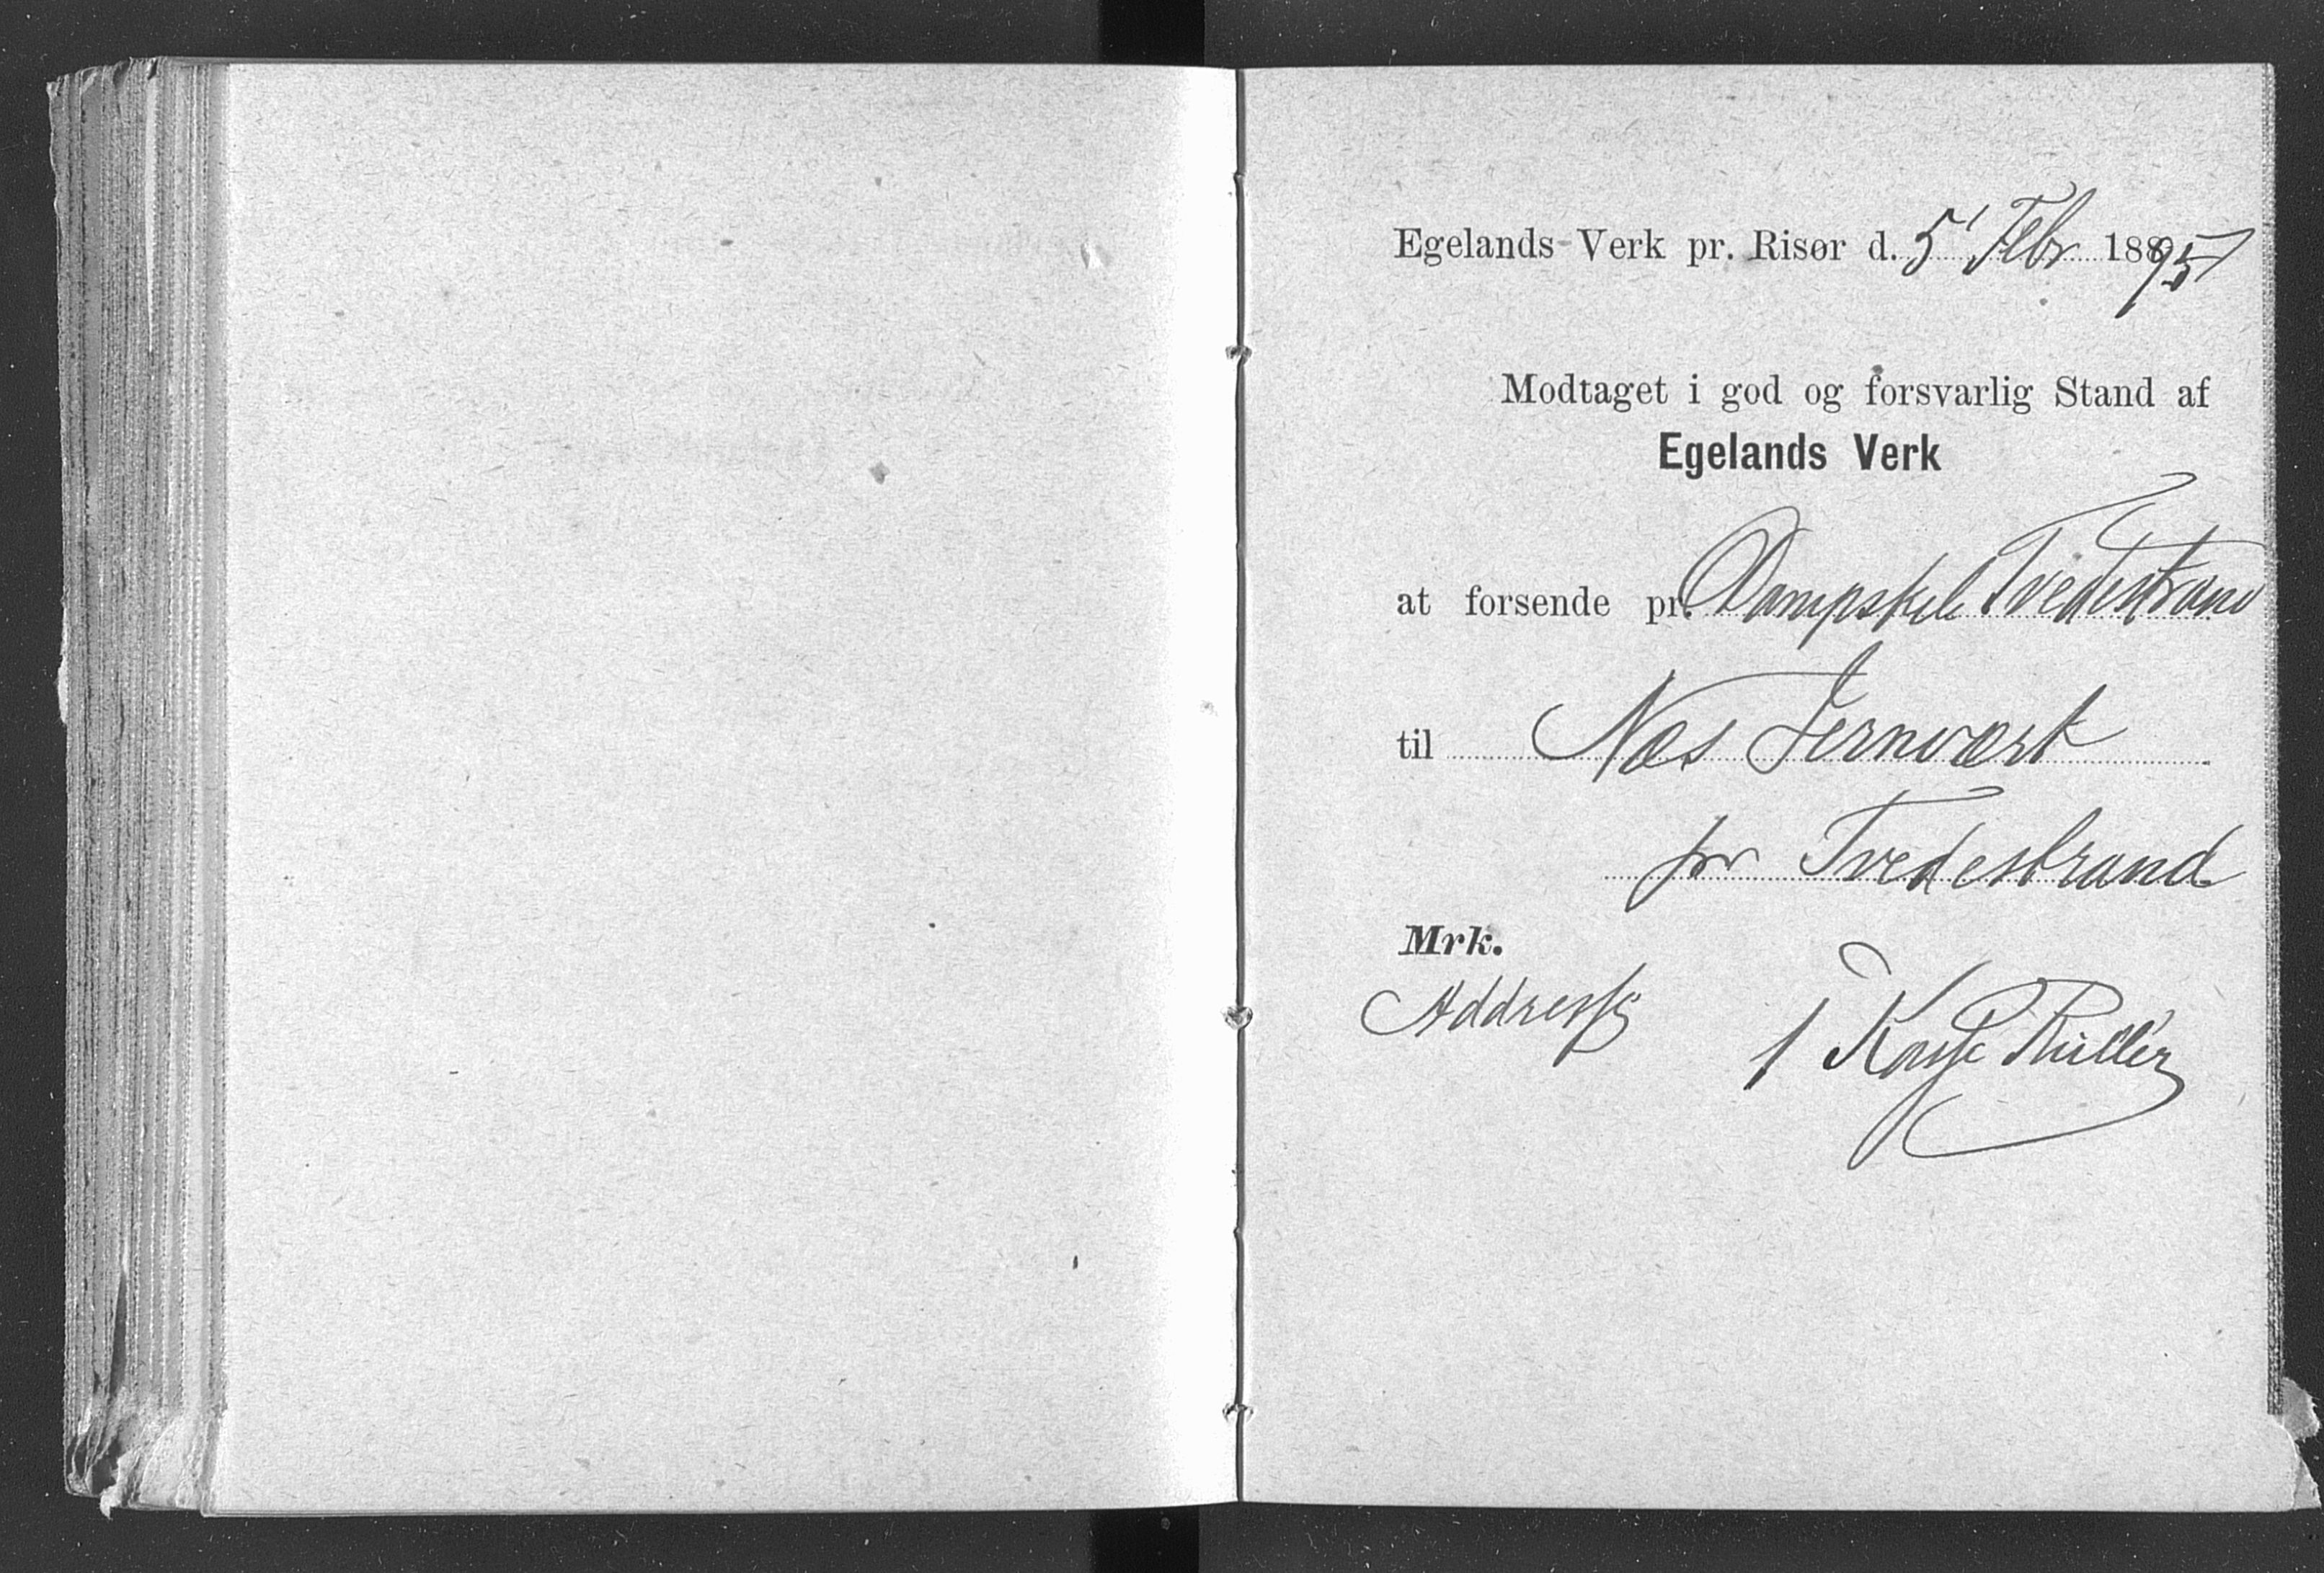 Egelands Verk pr. Risør d. 5' Febr 1895
Modtaget i god og forsvarlig Stand af
Egelands Verk
at forsende pr. Dampskib Tvedestrand
til Næs Jernværk
pr Tvedestrand
Mrk.
Addresse
1 Kasse Ruller